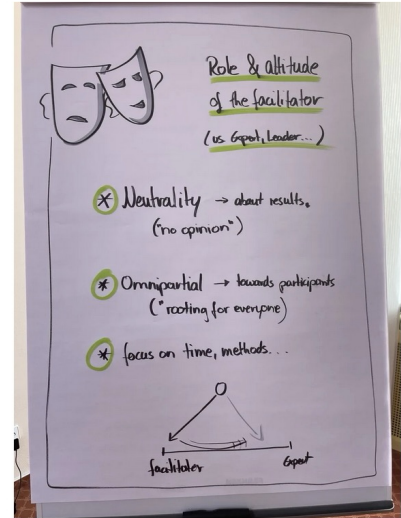 Role & attitude
of the facilitator
(vs Expert, Leader...)
* Neutrality → about results.
("no opinion")
* Omnipartial → towards participants
("rooting for everyone)
* focus on time, methods...
facilitator
Expert